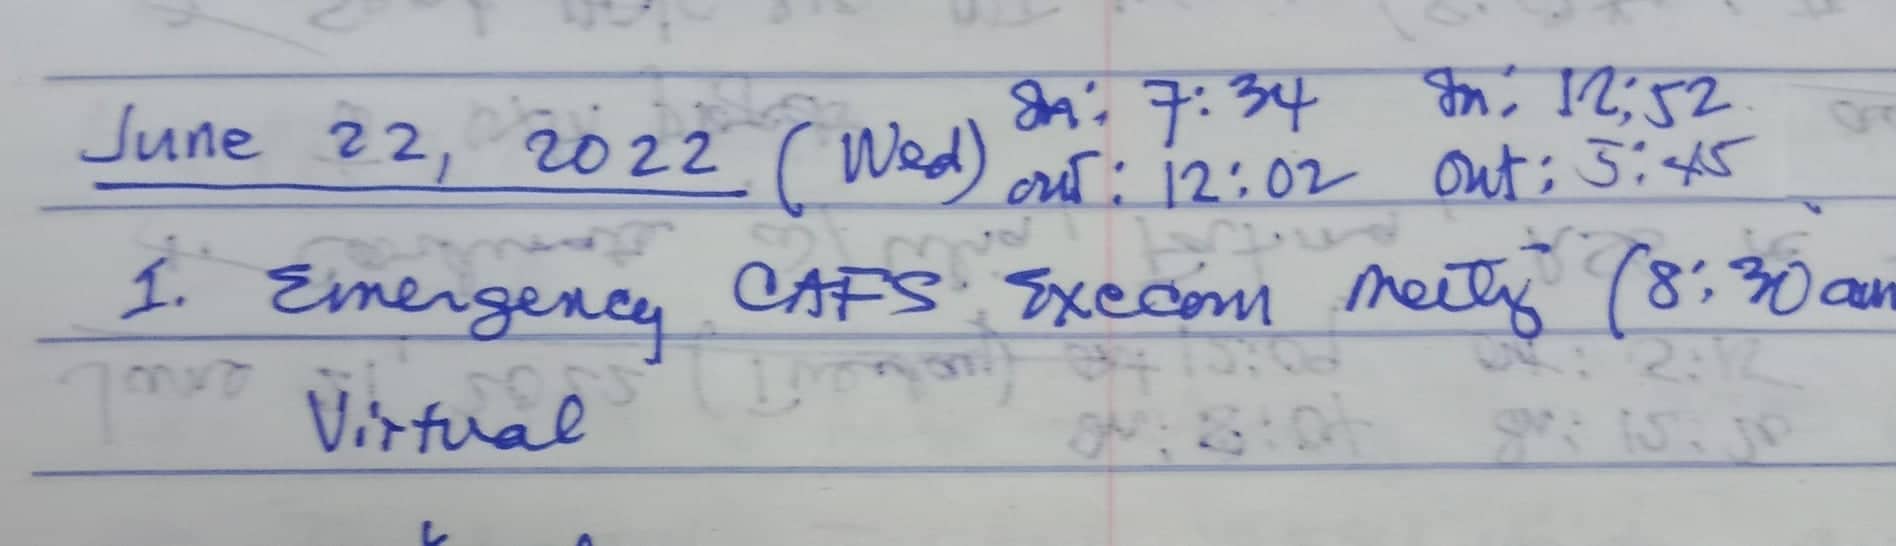 In: 7:34 In: 12:52
June 22, 2022 (Wed) out: 12:02 Out: 5:45
1. Emergency CAFS Execom meetg (8:30 am
Virtual